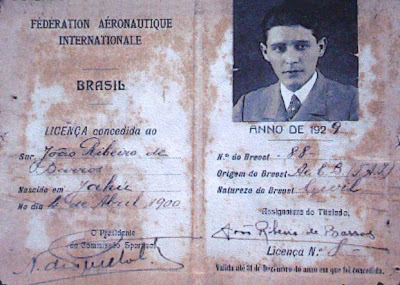 FÉDERATION AÉRONAUTIQUE
INTERNATIONALE
BRASIL
LICENÇA concedida ao
Snr João Ribeiro de
Barros
Nascido em Jahú
No dia 4 de Abril 1900
O Presidente
da Commissão Sportiva
ANNO DE 1929
N.º do Brevet 88
Origem do Brevet
Natureza do Brevet Civil
Assignatura do Titulado,
João Ribeiro de Barros
Licença N.º
Valida até 31 de Dezembro do anno em que foi concedida.